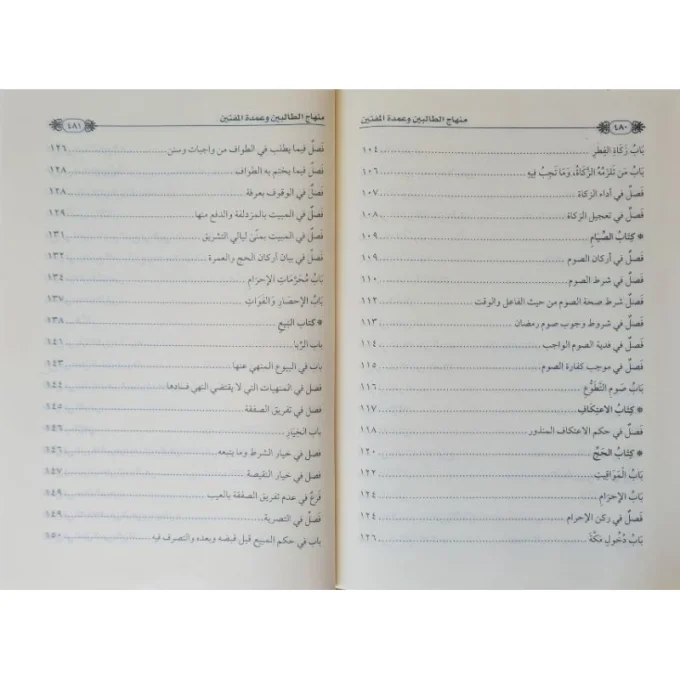 منهاج الطالبين وعمدة المفتين ٤٨٠
بَابُ زَكَاةِ الفِطْرِ ١٠٤
بَابُ مَن تَلْزَمُهُ الزَّكَاةُ، وَمَا تَجِبُ فِيهِ ١٠٦
فَصلٌ في أداء الزكاة ١٠٧
فَصلٌ في تعجيل الزكاة ١٠٨
* كِتَابُ الصِّيَامِ ١٠٩
فَصلٌ في أركان الصوم ١٠٩
فَصلٌ في شرط الصوم ١١٠
فَصلٌ شرط صحة الصوم من حيث الفاعل والوقت ١١٢
فَصلٌ في شروط وجوب صوم رمضان ١١٣
فَصلٌ في فدية الصوم الواجب ١١٤
فَصلٌ في موجب كفارة الصوم ١١٥
بَابُ صَومِ التَّطَوُّعِ ١١٦
* كِتَابُ الاعتِكَافِ ١١٧
فَصلٌ في حكم الاعتكاف المنذور ١١٨
* كِتَابُ الحَجِّ ١٢٠
بَابُ الْمَوَاقِيتِ ١٢٢
بَابُ الإحْرَامِ ١٢٤
فَصلٌ في ركن الإحرام ١٢٤
بَابُ دُخُولِ مَكَّةَ ١٢٦
منهاج الطالبين وعمدة المفتين ٤٨١
فَصلٌ فيما يطلب في الطواف من واجبات وسنن ١٢٦
فَصلٌ فيما يختم به الطواف ١٢٨
فَصلٌ في الوقوف بعرفة ١٢٨
فَصلٌ في المبيت بالمزدلفة والدفع منها ١٢٩
فَصلٌ في المبيت بمنًى ليالي التشريق ١٣١
فَصلٌ في بيان أركان الحج والعمرة ١٣٢
بَابُ مُحَرَّمَاتِ الإحْرَامِ ١٣٤
بَابُ الإحْصَارِ وَالفَوَاتِ ١٣٧
* كتَاب البَيعِ ١٣٨
باب الرِّبا ١٤١
باب في البيوع المنهي عنها ١٤٣
فصل في المنهيات التي لا يقتضي النهي فسادها ١٤٤
فَصلٌ في تفريق الصفقة ١٤٥
باب الخِيَارِ ١٤٦
فصل في خيار الشرط وما يتبعه ١٤٦
فصل في خيار النقيصة ١٤٧
فَرعٌ في عدم تفريق الصفقة بالعيب ١٤٩
فَصلٌ في التصرية ١٤٩
باب في حكم المبيع قبل قبضه وبعده والتصرف فيه ١٥٠